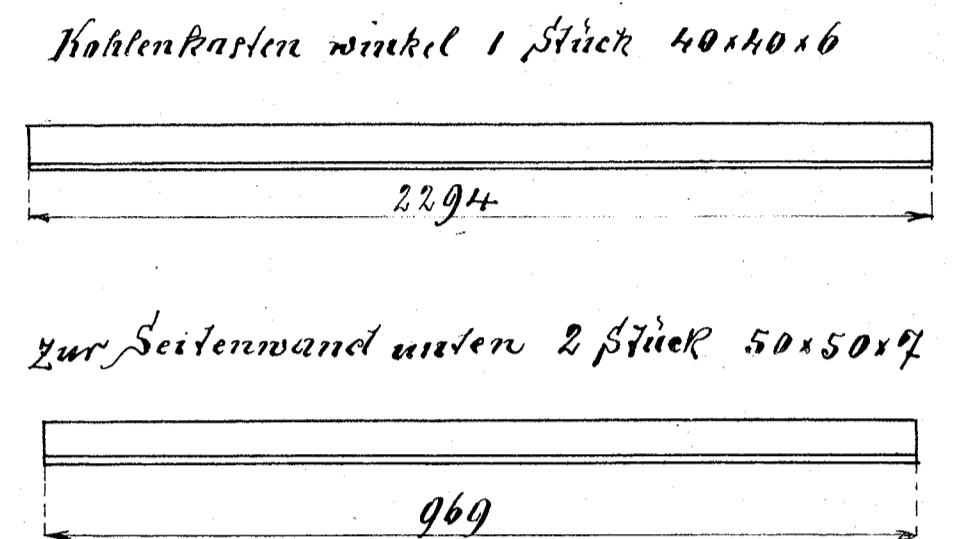 Kohlenkasten winkel 1 Stück 40x40x6
2294
zur Seitenwand unten 2 Stück 50x50x7
969